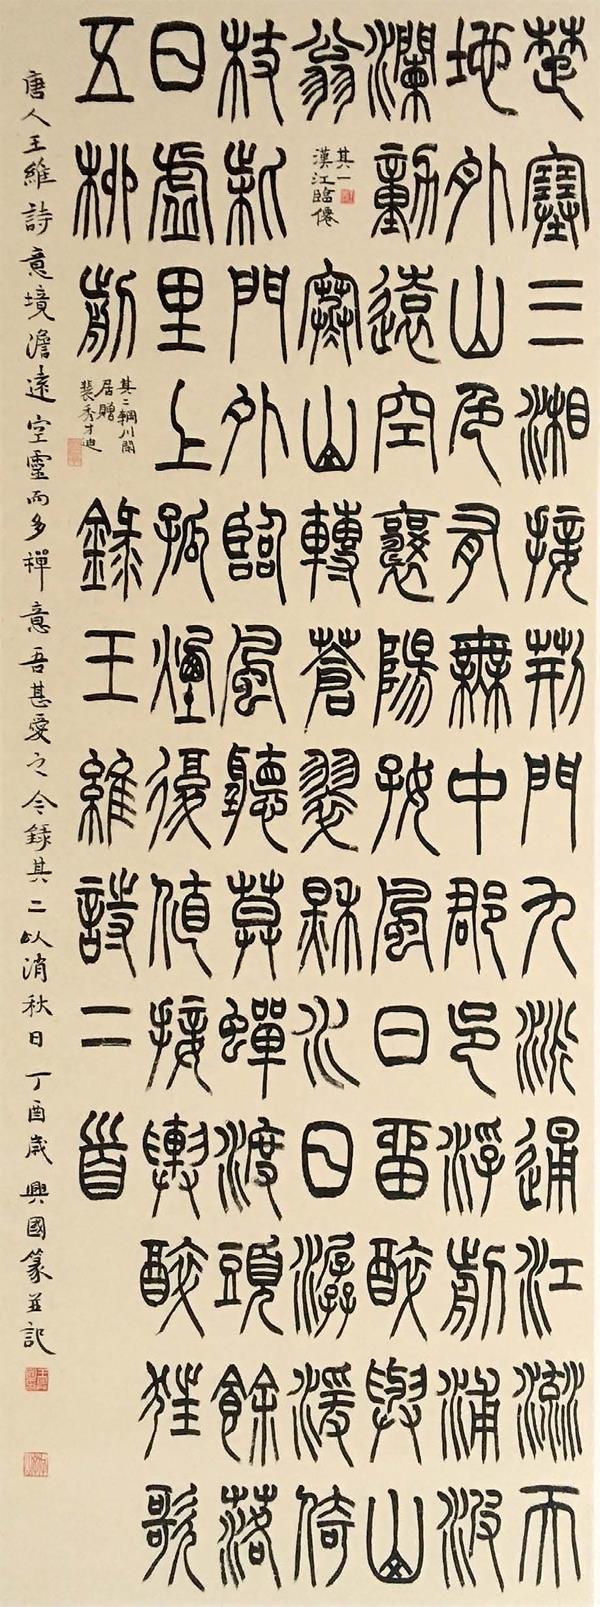 楚塞三湘接荆門九派通江流天
地外山色有無中郡邑浮前浦波
瀾動遠空襄陽好風日留醉與山
翁
其一
漢江臨僊
寒山轉蒼翠秋水日潺湲倚
杖柴門外臨風聽暮蟬渡頭餘落
日墟里上孤煙復值接輿醉狂歌
五柳前
其二輞川閒
居贈
裴秀才迪
錄王維詩二首
唐人王維詩意境澹遠空靈而多禪意吾甚愛之今錄其二以消秋日丁酉歲興國篆並記